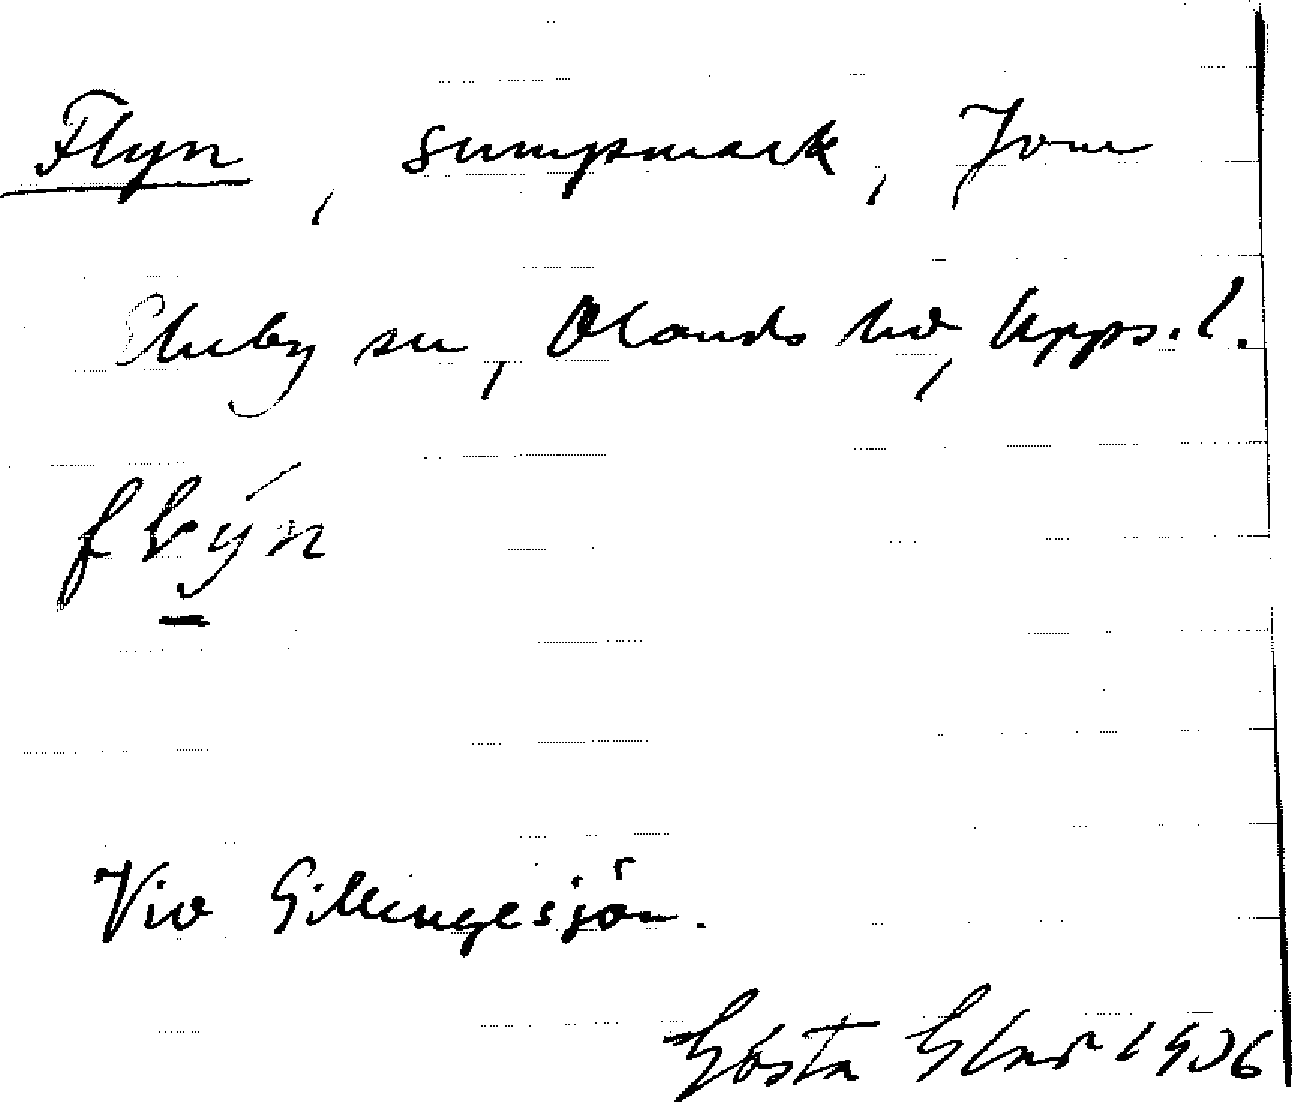 Flyn, sumpmark, Jom
Skuby sn, Olands hd, Upps. l.
flýn
Vid Gillingesjön.
Gösta Glad 1936